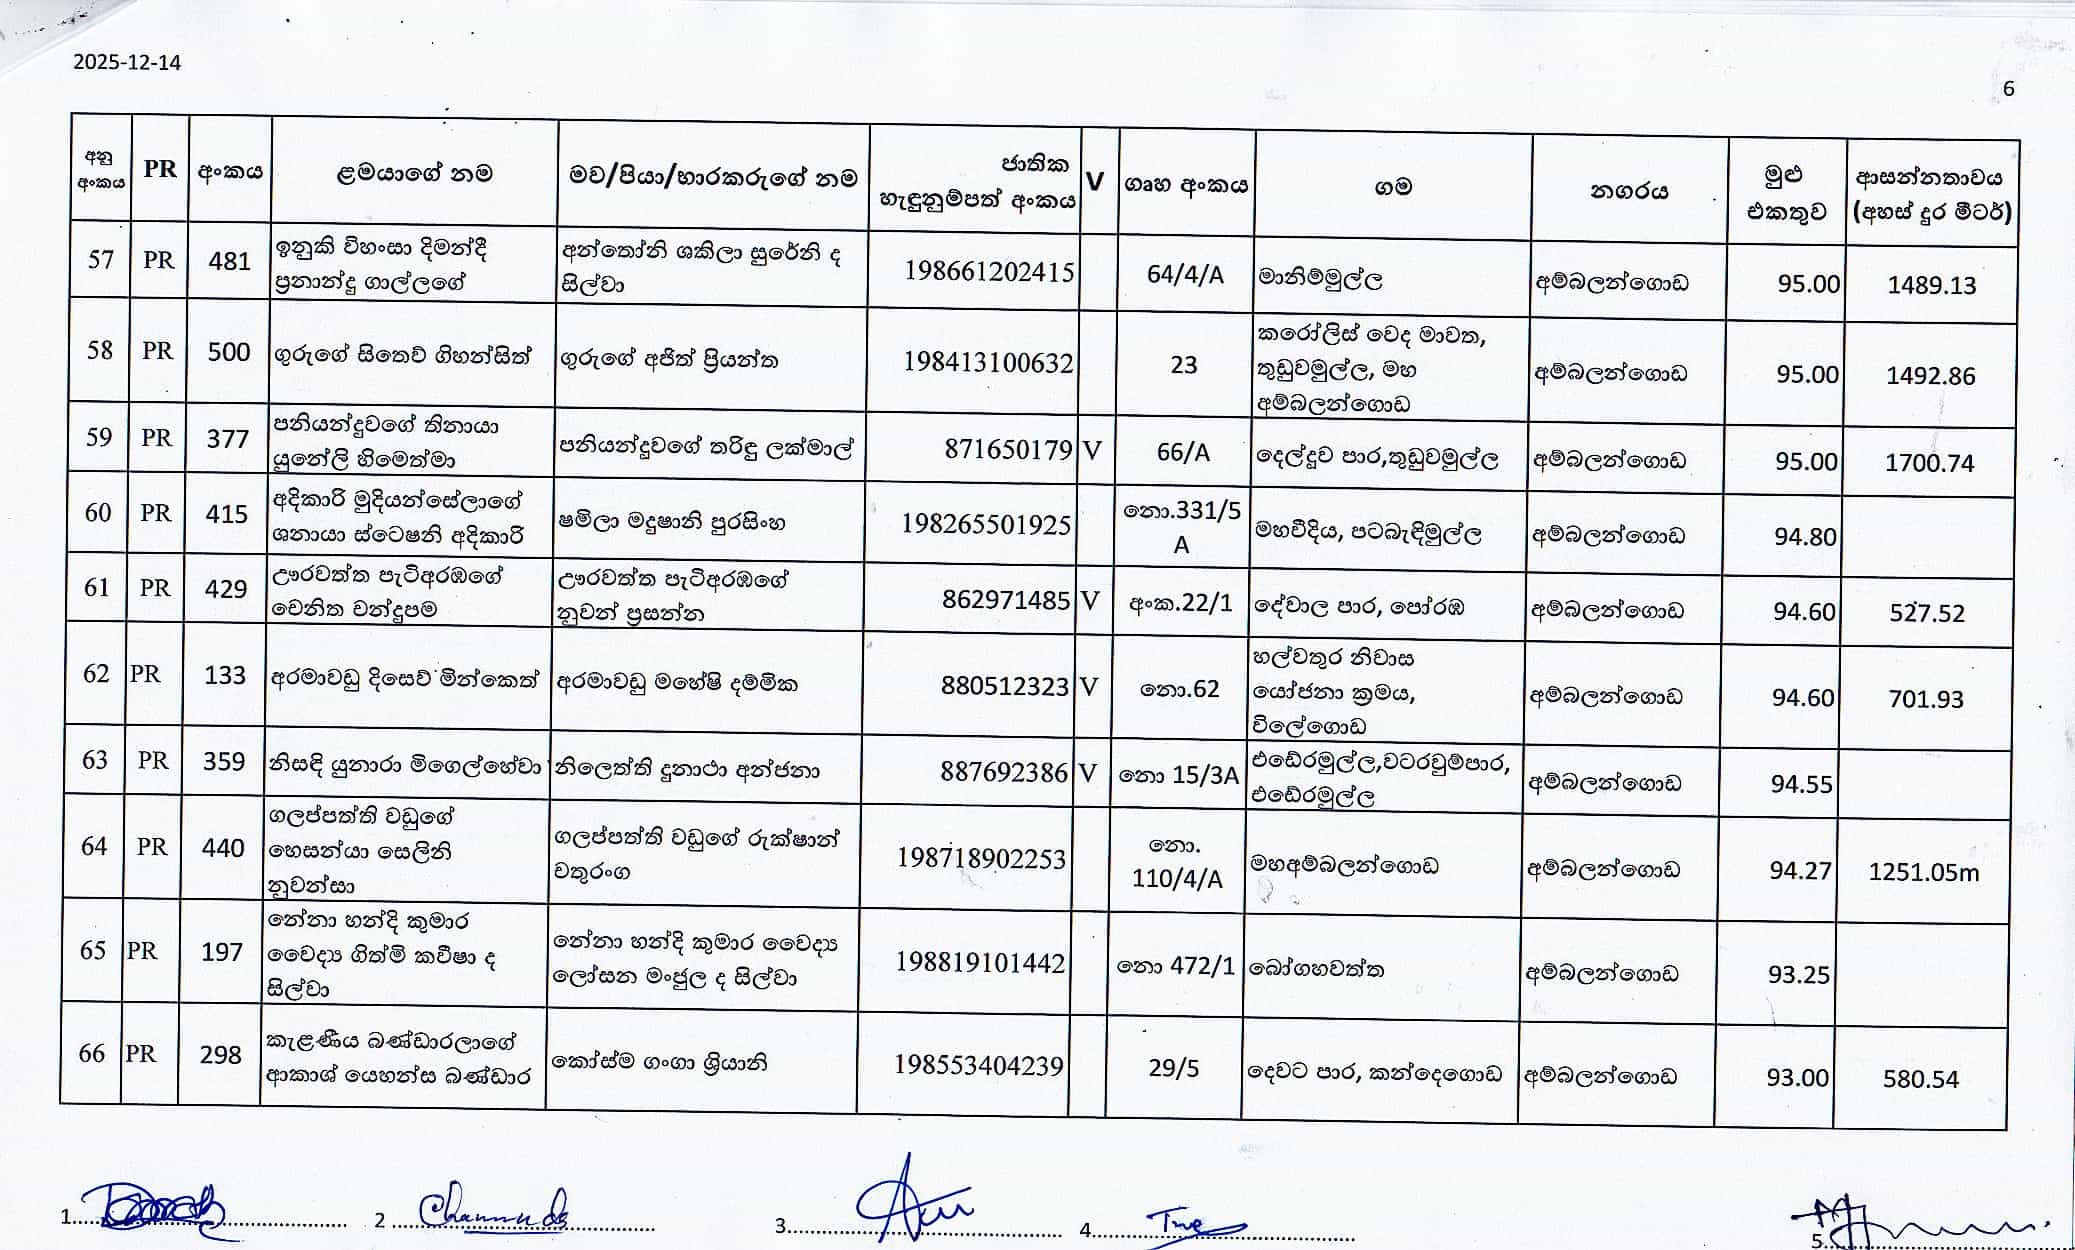 2025-12-14
6
අනු අංකය PR අංකය ළමයාගේ නම මව/පියා/භාරකරුගේ නම ජාතික හැඳුනුම්පත් අංකය V ගෘහ අංකය ගම නගරය මුළු එකතුව ආසන්නතාවය (අහස් දුර මීටර්)
57 PR 481 ඉනුකි විහංසා දිමන්දී ප්‍රනාන්දු ගාල්ලගේ අන්තෝනි ශකිලා සුරේනි ද සිල්වා 198661202415 64/4/A මානිම්මුල්ල අම්බලන්ගොඩ 95.00 1489.13
58 PR 500 ගුරුගේ සිතෙව් ගිහන්සිත් ගුරුගේ අජිත් ප්‍රියන්ත 198413100632 23 කරෝලිස් වෙද මාවත, තුඩුවමුල්ල, මහ අම්බලන්ගොඩ අම්බලන්ගොඩ 95.00 1492.86
59 PR 377 පනියන්දුවගේ තිනායා යුනේලි හිමෙත්මා පනියන්දුවගේ තරිඳු ලක්මාල් 871650179 V 66/A දෙල්දූව පාර,තුඩුවමුල්ල අම්බලන්ගොඩ 95.00 1700.74
60 PR 415 අදිකාරි මුදියන්සේලාගේ ශනායා ස්ටෙෂනි අදිකාරි ෂමිලා මදුෂානි පුරසිංහ 198265501925 නො.331/5 A මහවීදිය, පටබැඳිමුල්ල අම්බලන්ගොඩ 94.80
61 PR 429 ඌරවත්ත පැටිඅරඹගේ චෙනිත චන්දුපම ඌරවත්ත පැටිඅරඹගේ නුවන් ප්‍රසන්න 862971485 V අංක.22/1 දේවාල පාර, පෝරඹ අම්බලන්ගොඩ 94.60 527.52
62 PR 133 අරමාවඩු දිසෙව් මින්කෙත් අරමාවඩු මහේෂි දම්මික 880512323 V නො.62 හල්වතුර නිවාස යෝජනා ක්‍රමය, විලේගොඩ අම්බලන්ගොඩ 94.60 701.93
63 PR 359 නිසඳි යුනාරා මිගෙල්හේවා නිලෙත්ති දුනාථා අන්ජනා 887692386 V නො 15/3A එඩේරමුල්ල,වටරවුම්පාර, එඩේරමුල්ල අම්බලන්ගොඩ 94.55
64 PR 440 ගලප්පත්ති වඩුගේ හෙසන්යා සෙලිනි නුවන්සා ගලප්පත්ති වඩුගේ රුක්ෂාන් චතුරංග 198718902253 නො. 110/4/A මහඅම්බලන්ගොඩ අම්බලන්ගොඩ 94.27 1251.05m
65 PR 197 නේනා හන්දි කුමාර වෛද්‍ය ගිත්මි කවීෂා ද සිල්වා නේනා හන්දි කුමාර වෛද්‍ය ලෝසන මංජුල ද සිල්වා 198819101442 නො 472/1 බෝගහවත්ත අම්බලන්ගොඩ 93.25
66 PR 298 කැළණිය බණ්ඩාරලාගේ ආකාශ් යෙහන්ස බණ්ඩාර කෝස්ම ගංගා ශ්‍රියානි 198553404239 29/5 දෙවට පාර, කන්දෙගොඩ අම්බලන්ගොඩ 93.00 580.54
1. 2 3. 4. 5.